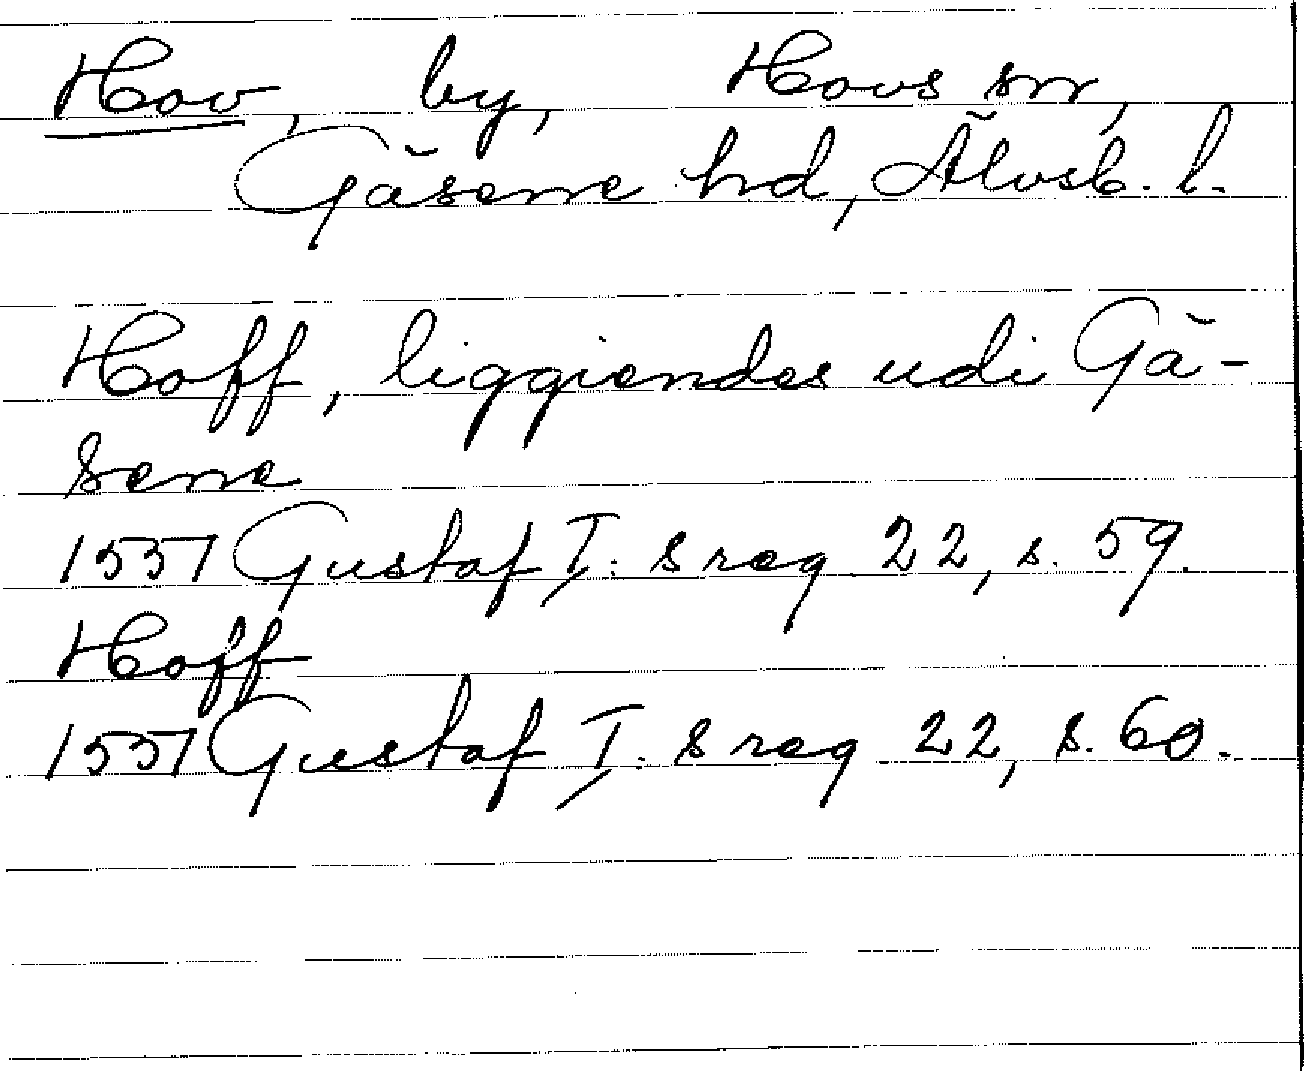 Hov, by, Hovs sn,
Gäsene hd, Älvsb. l.
Hoff, liggiendes udi Gä-
sene
1551 Gustaf I:s reg 22, s. 59.
Hoff
1551 Gustaf I:s reg 22, s. 60.